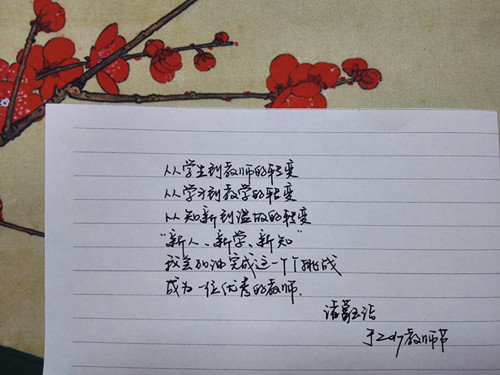 从学生到教师的转变
从学习到教学的转变
从知新到温故的转变
“新人、新学、新知”
我会加油完成这一个个挑战
成为一位优秀的教师.
诸葛
于2017教师节